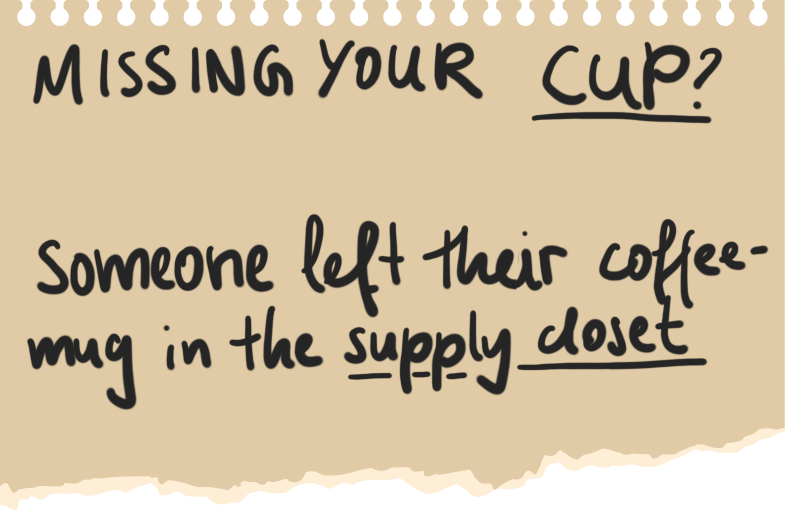 MISSING YOUR CUP?
Someone left their coffee-
mug in the supply closet